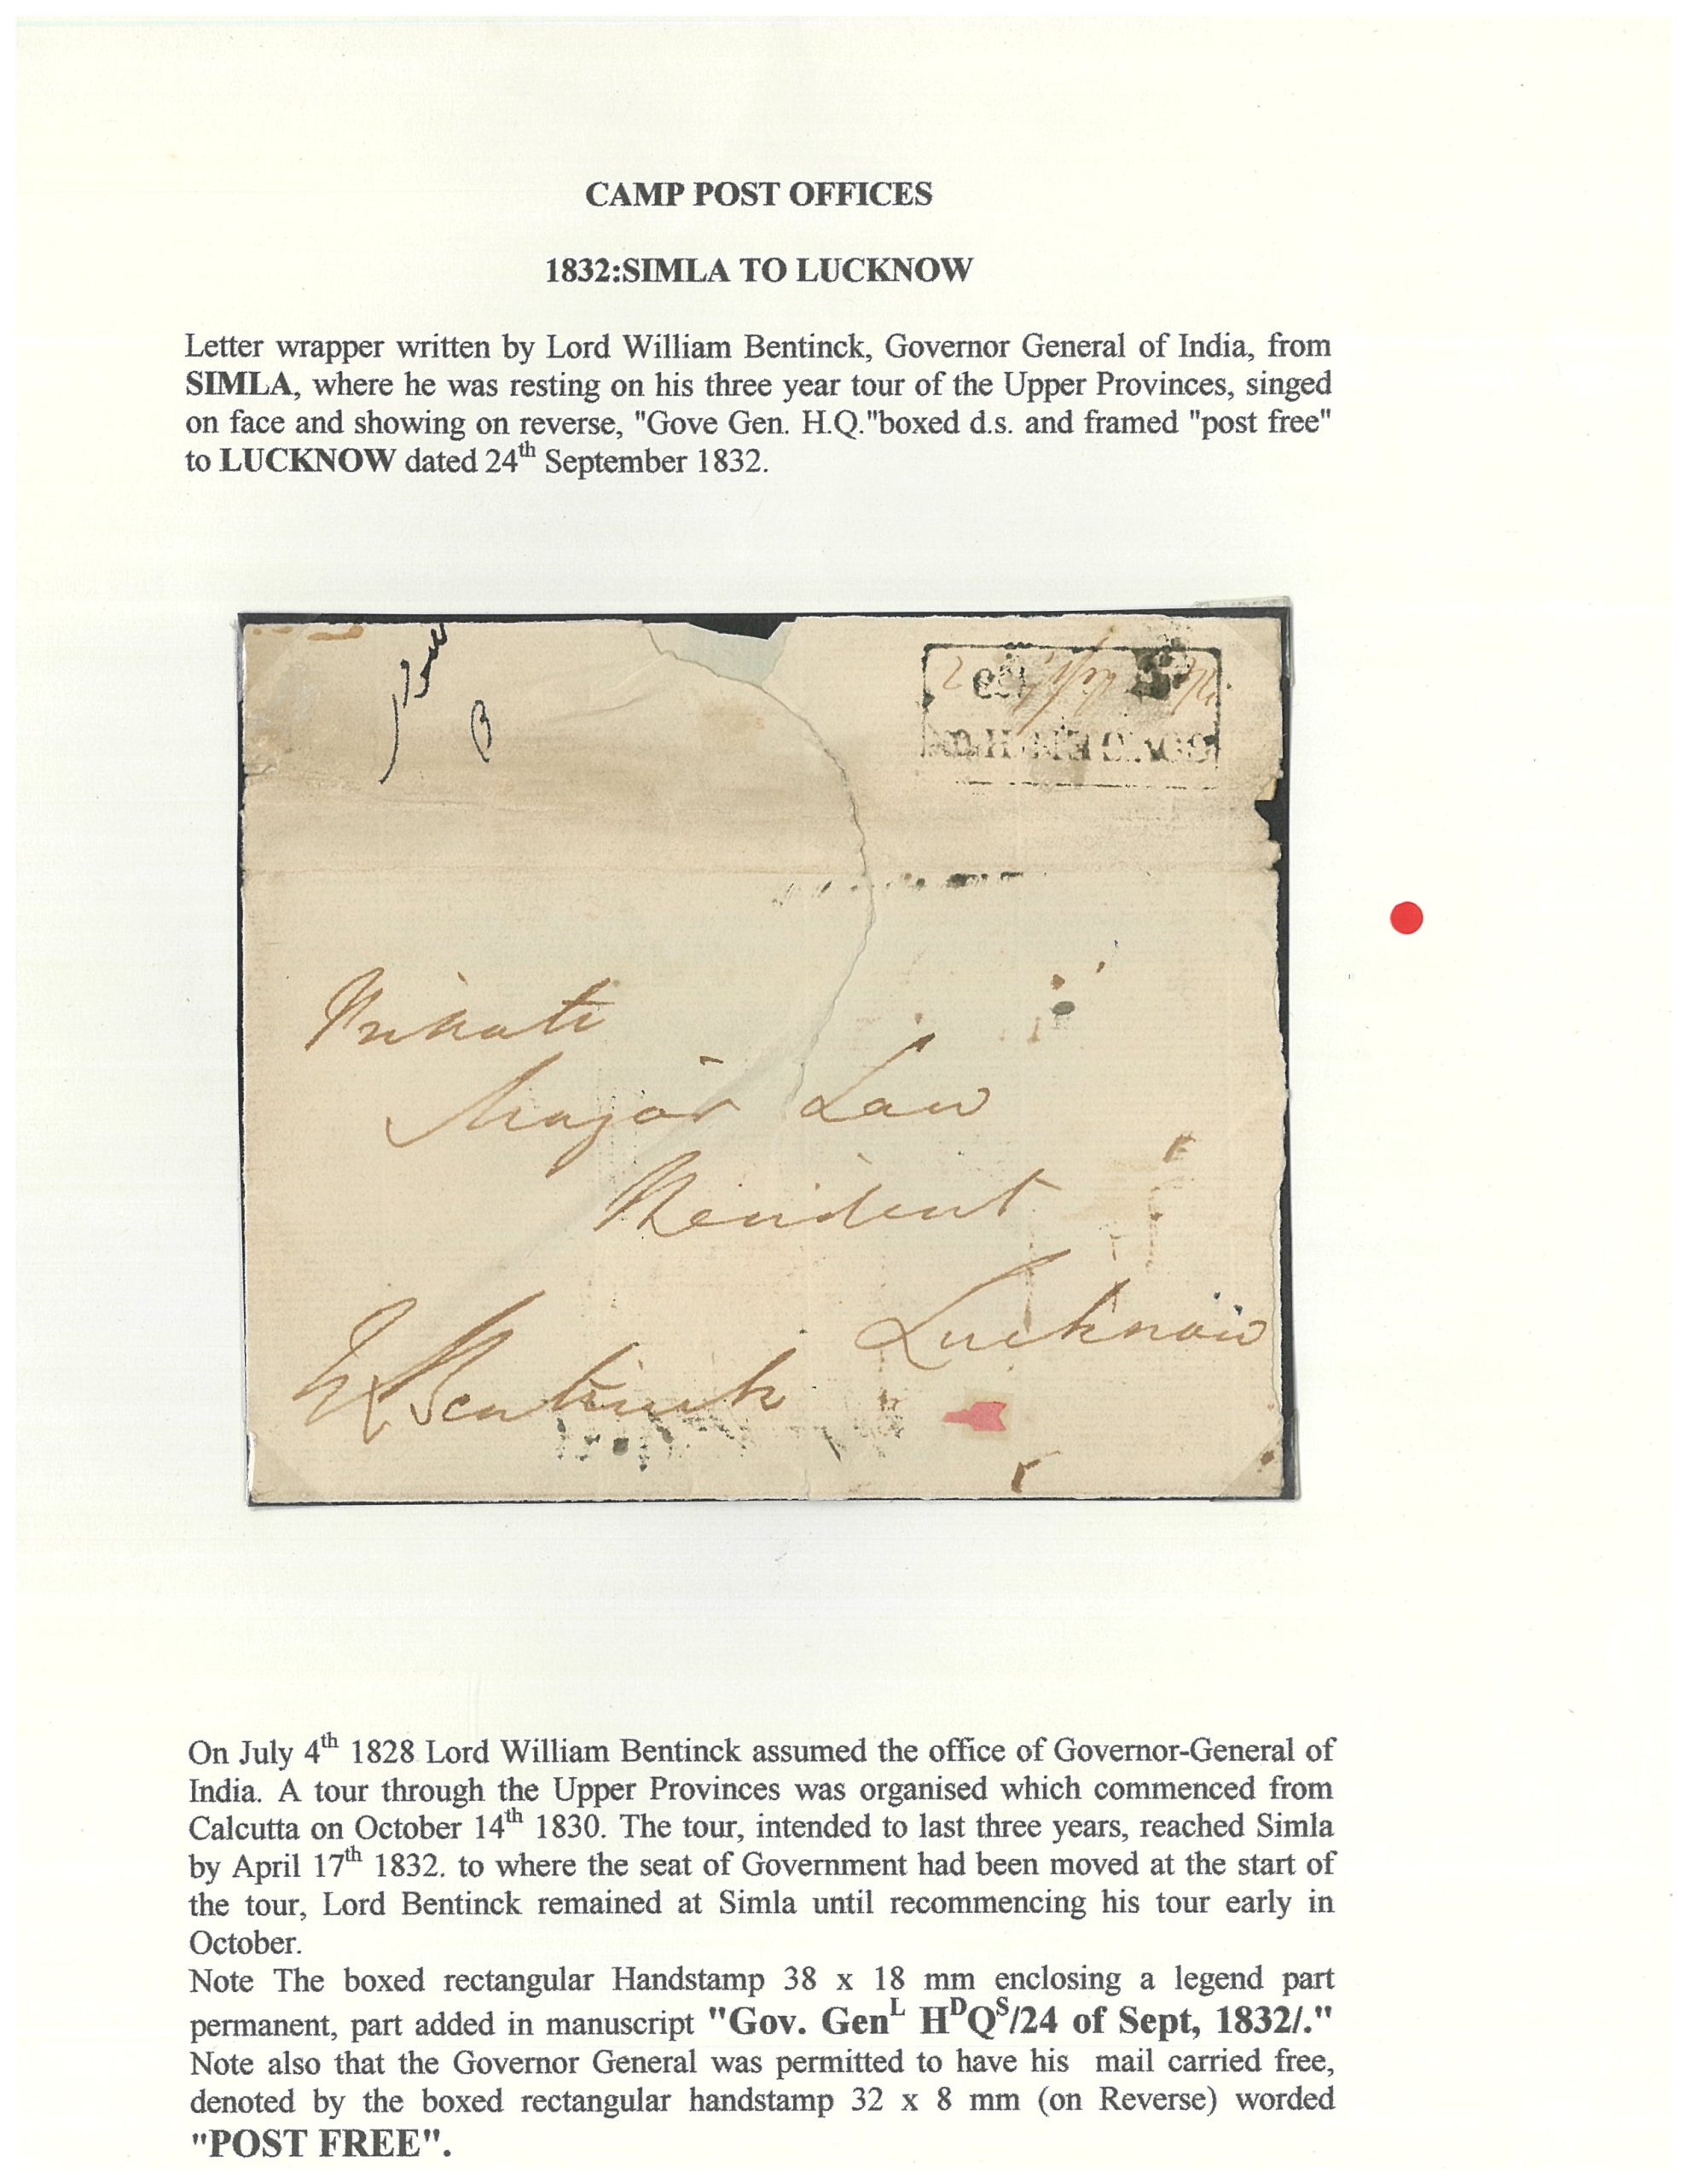 CAMP POST OFFICES
1832:SIMLA TO LUCKNOW
Letter wrapper written by Lord William Bentinck, Governor General of India, from
SIMLA, where he was resting on his three year tour of the Upper Provinces, singed
on face and showing on reverse, "Gove Gen. H.Q."boxed d.s. and framed "post free"
to LUCKNOW dated 24th September 1832.
Private
Major Law
Resident
Lucknow
W Bentinck
On July 4th 1828 Lord William Bentinck assumed the office of Governor-General of
India. A tour through the Upper Provinces was organised which commenced from
Calcutta on October 14th 1830. The tour, intended to last three years, reached Simla
by April 17th 1832. to where the seat of Government had been moved at the start of
the tour, Lord Bentinck remained at Simla until recommencing his tour early in
October.
Note The boxed rectangular Handstamp 38 x 18 mm enclosing a legend part
permanent, part added in manuscript "Gov. GenL HDQS/24 of Sept, 1832/."
Note also that the Governor General was permitted to have his mail carried free,
denoted by the boxed rectangular handstamp 32 x 8 mm (on Reverse) worded
"POST FREE".